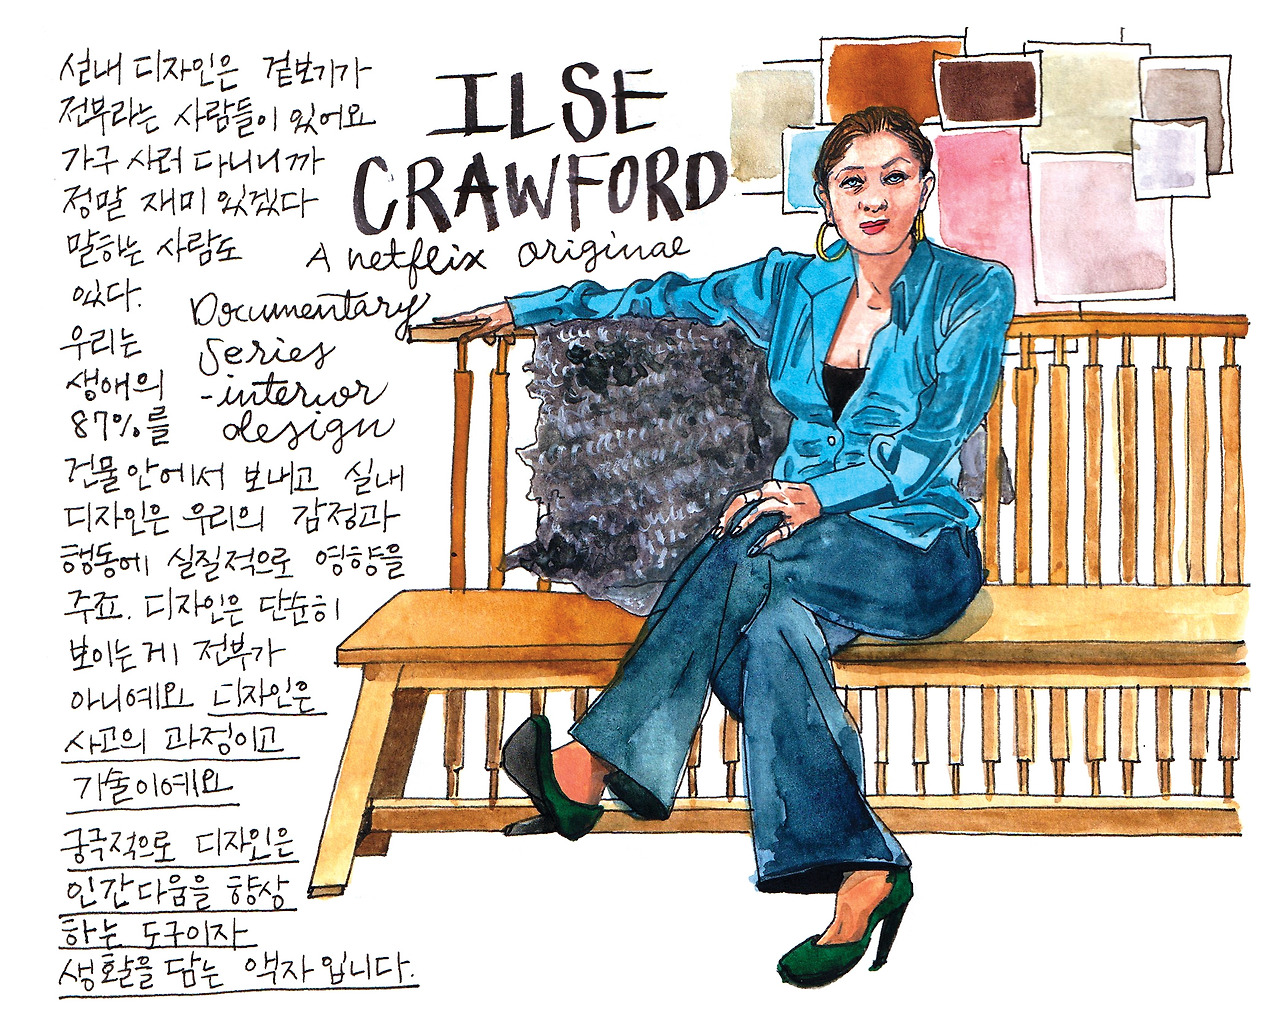 실내 디자인은 겉보기가
전부라는 사람들이 있어요
가구 사러 다니니까
정말 재미 있겠다
말하는 사람도
있다.
우리는
생애의
87%를
건물 안에서 보내고 실내
디자인은 우리의 감정과
행동에 실질적으로 영향을
주죠. 디자인은 단순히
보이는게 전부가
아니예요 디자인은
사고의 과정이고
기술이예요
궁극적으로 디자인은
인간다움을 향상
하는 도구이자
생활을 담는 액자입니다.
ILSE
CRAWFORD
A netflix original
Documentary
series
-interior
design